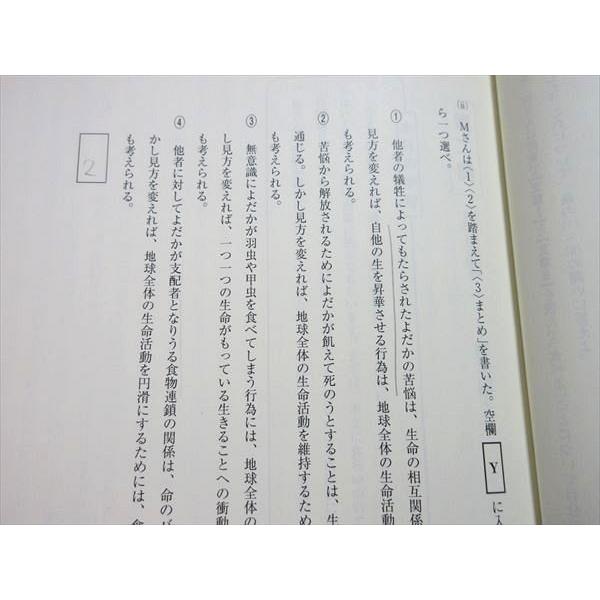 (ⅱ) Mさんは〈1〉〈2〉を踏まえて「〈3〉まとめ」を書いた。空欄 Y に入
ら一つ選べ。
① 他者の犠牲によってもたらされたよだかの苦悩は、生命の相互関係
見方を変えれば、自他の生を昇華させる行為は、地球全体の生命活動
も考えられる。
② 苦悩から解放されるためによだかが飢えて死のうとすることは、生
通じる。しかし見方を変えれば、地球全体の生命活動を維持するため
も考えられる。
③ 無意識によだかが羽虫や甲虫を食べてしまう行為には、地球全体の
し見方を変えれば、一つ一つの生命がもっている生きることへの衝動
も考えられる。
④ 他者に対してよだかが支配者となりうる食物連鎖の関係は、命のバ
かし見方を変えれば、地球全体の生命活動を円滑にするためには、食
も考えられる。
2